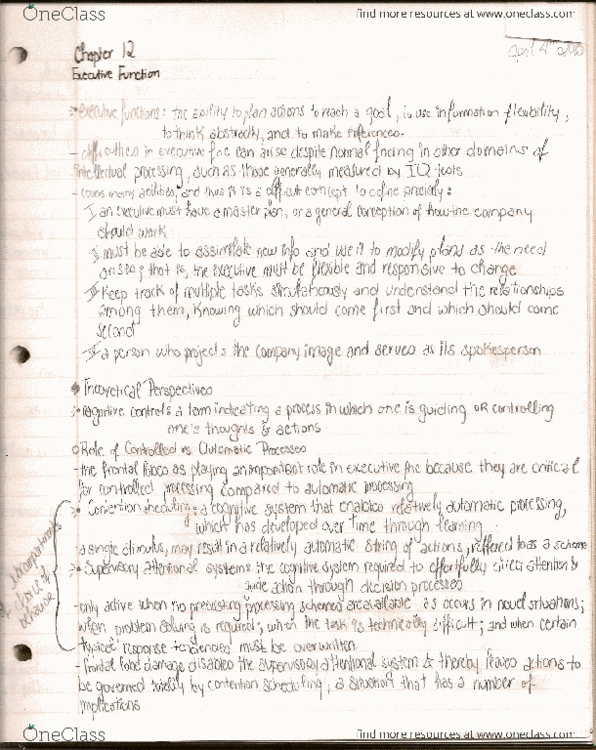 OneClass
find more resources at www.oneclass.com
Chapter 12
April 4th
Executive Function
executive functions: the ability to plan actions to reach a goal, to use information flexibility,
to think abstractly, and to make inferences.
- difficulties in executive fnc can arise despite normal fncing in other domains of
intellectual processing, such as those generally measured by IQ tests
- covers many abilities, and thus it is a difficult concept to define precisely:
I an executive must have a master plan, or a general conception of how the company
should work
II must be able to assimilate new info and use it to modify plans as the need
arises; that is, the executive must be flexible and responsive to change
III Keep track of multiple tasks simultaneously and understand the relationships
among them, knowing which should come first and which should come
second
IV a person who projects the company image and serves as its spokesperson
Theoretical Perspectives
Cognitive control: a term indicating a process in which one is guiding OR controlling
one's thoughts & actions
Role of Controlled vs Automatic Processes
- the frontal lobes as playing an important role in executive fnc because they are critical
for controlled processing compared to automatic processing
Contention scheduling: a cognitive system that enables relatively automatic processing,
which has developed over time through learning
- a single stimulus, may result in a relatively automatic string of actions, reffered to as a schema
Supervisory attentional system: the cognitive system required to effortfully direct attention &
guide action through decision processes
- only active when no preexisting processing schemes are available as occurs in novel situations;
when problem solving is required; when the task is technically difficult; and when certain
typical response tendencies must be overwritten
- frontal lobe damage disables the supervisory attentional system & thereby leaves actions to
be governed solely by contention scheduling, a situation that has a number of
implications
components
of choice of
behaviour
OneClass
find more resources at www.oneclass.com